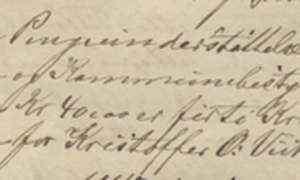 Pengeunderstøttelse
og Kommunebesty
Kr 40,00 er firti Kr
for Kristoffer O. Vist